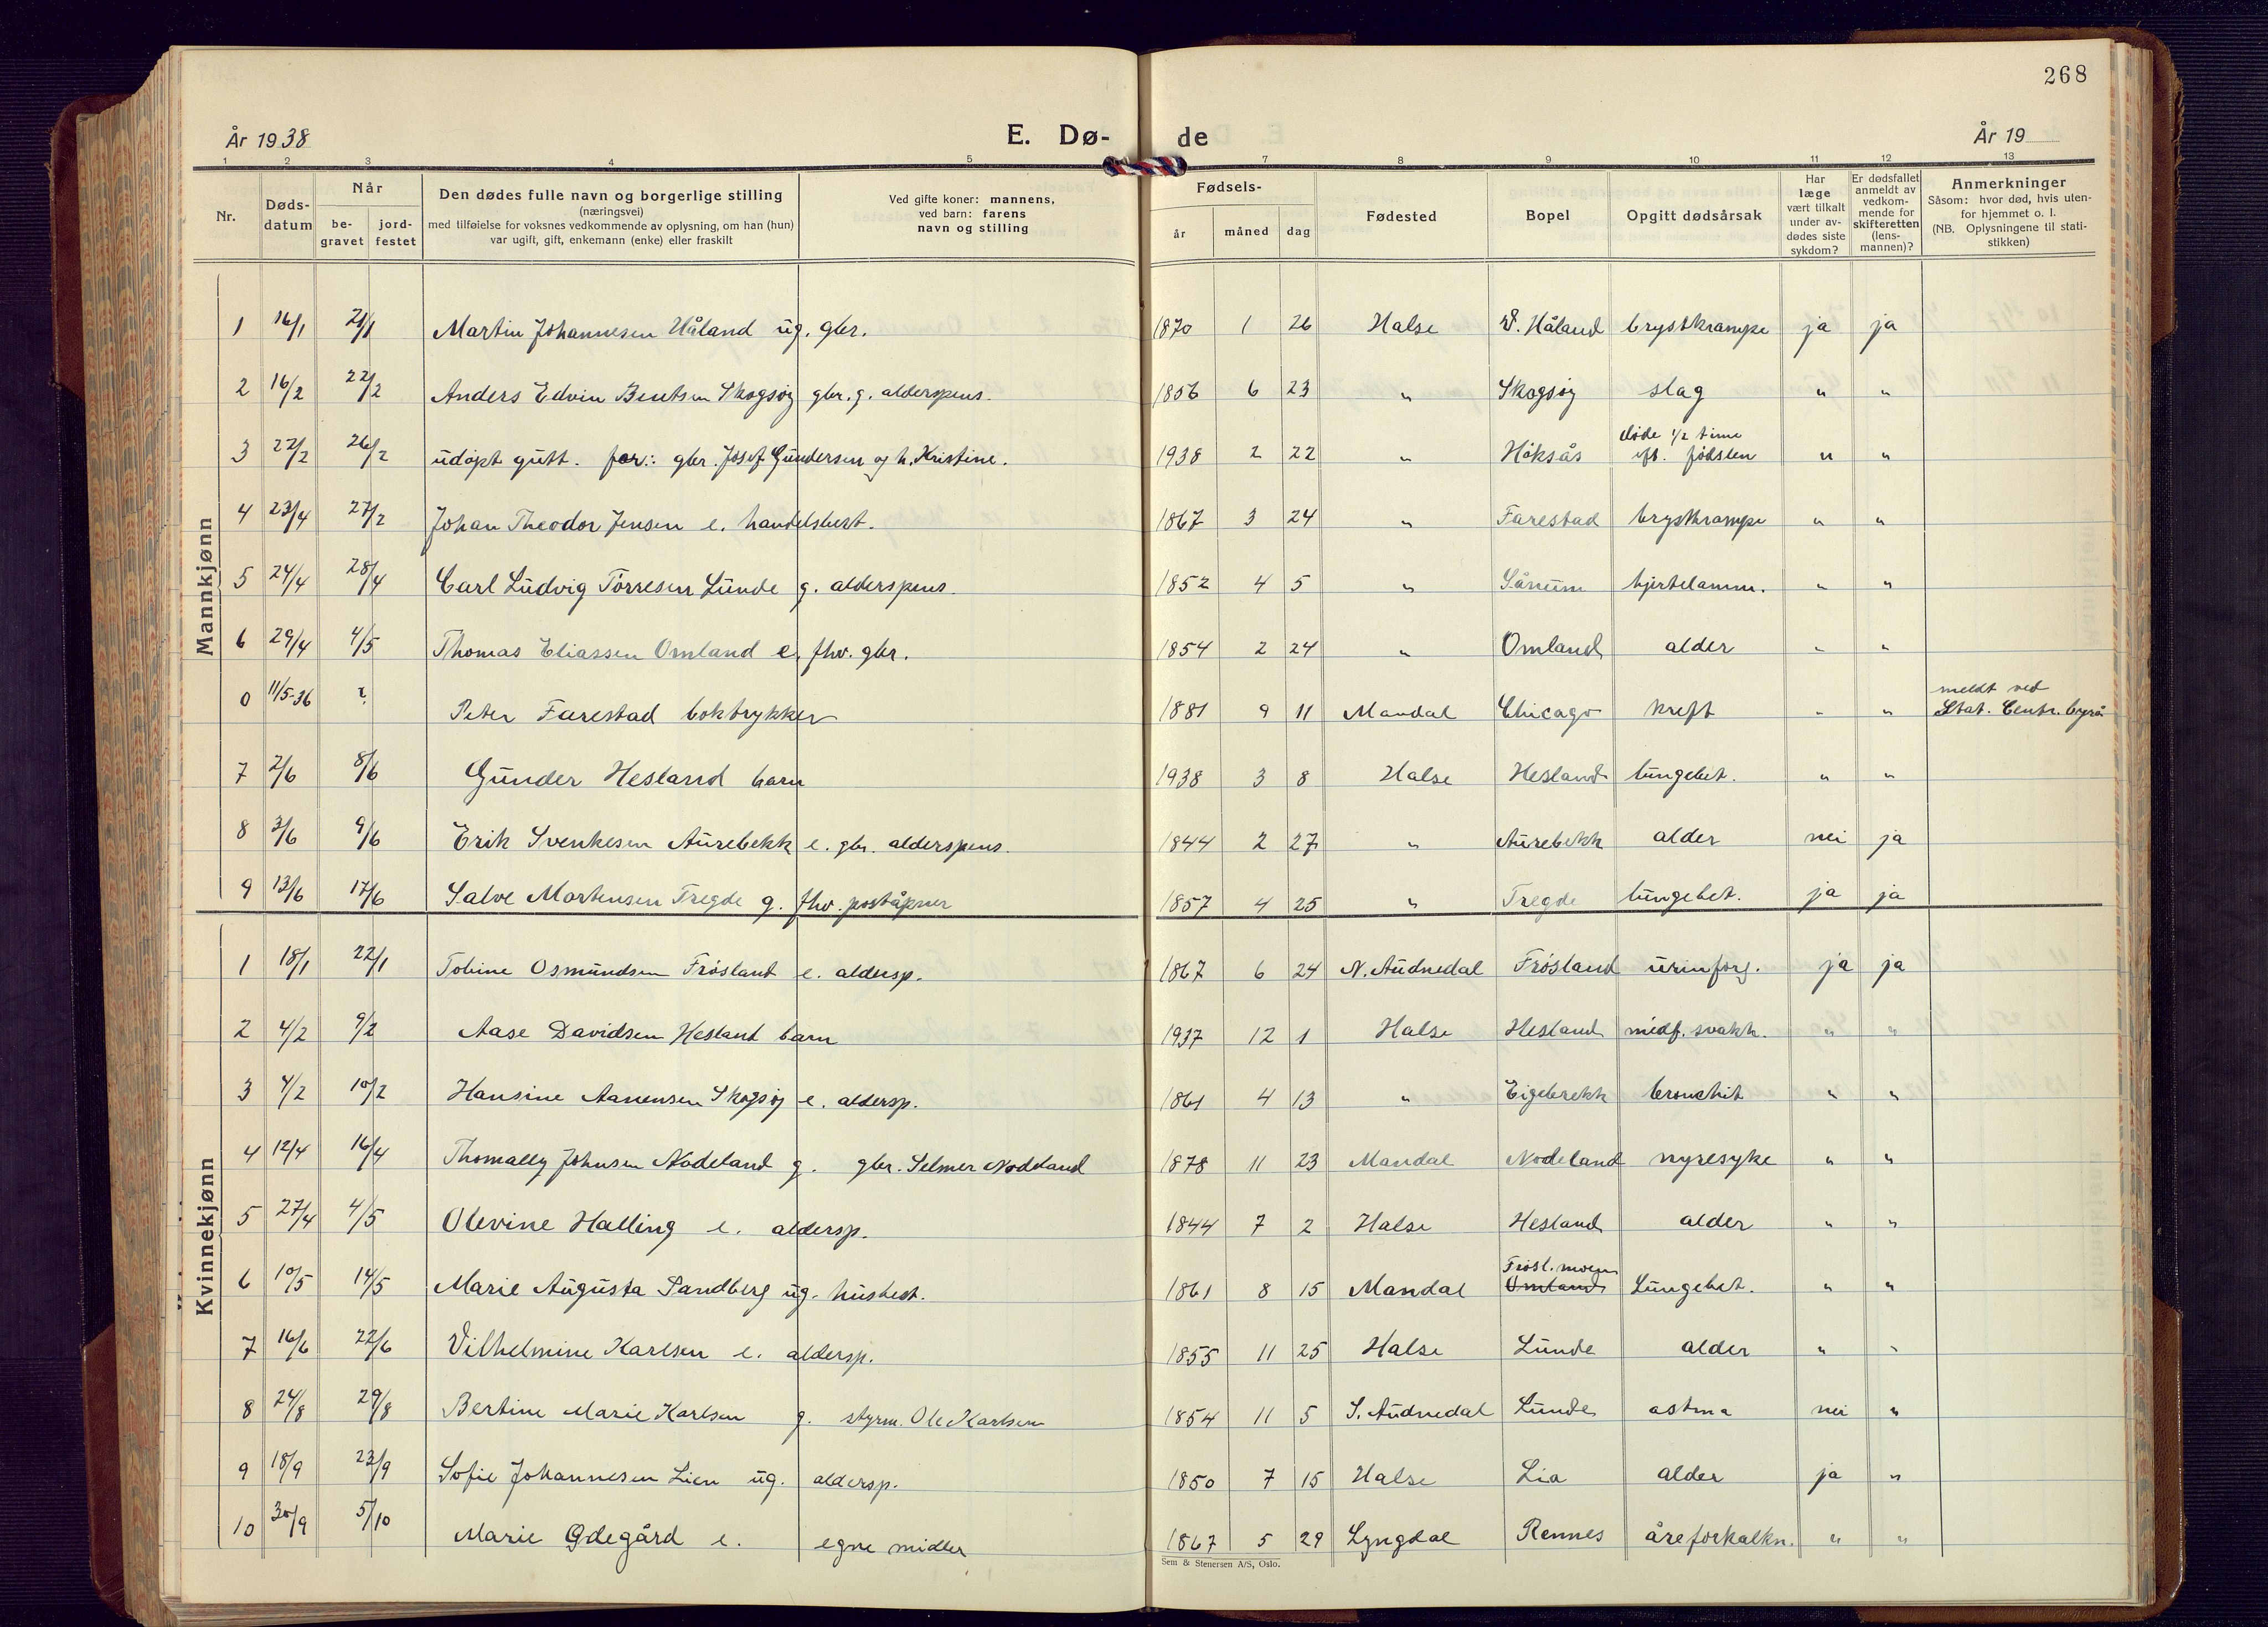 268
År 1938 E. Dø- de År 19
1 2 3 4 5 7 8 9 10 11 12 13
Nr. Døds-datum Når be-gravet jord-festet Den dødes fulle navn og borgerlige stilling (næringsvei) med tilføielse for voksnes vedkommende av oplysning, om han (hun) var ugift, gift, enkemann (enke) eller fraskilt Ved gifte koner: mannens, ved barn: farens navn og stilling Fødsels- år måned dag Fødested Bopel Opgitt dødsårsak Har læge vært tilkalt under av-dødes siste sykdom? Er dødsfallet anmeldt av vedkom-mende for skifteretten (lens-mannen)? Anmerkninger Såsom: hvor død, hvis uten-for hjemmet o. l. (NB. Oplysningene til stati-stikken)
Mannkjønn
1 16/1 21/1 Martin Johannesen Håland ug. gbr. 1870 1 26 Halse V. Håland brystkrampe ja ja
2 16/2 22/2 Anders Edvin Bentsen Skogsøy gbr. g. alderspens. 1856 6 23 " Skogsøy slag " "
3 22/2 26/2 udøpt gutt. for.: gbr. Josef Gundersen og h. Kristine. 1938 2 22 " Höksås døde 1/2 time eft. fødslen " "
4 23/4 27/2 Johan Theodor Jensen e. handelsbest. 1867 3 24 " Farestad brystkrampe " "
5 24/4 28/4 Carl Ludvig Torresen Lunde g. alderspens. 1852 4 5 " Sånum hjertelamm. " "
6 29/4 4/5 Thomas Eliassen Omland e. fhv. gbr. 1854 2 24 " Omland alder " "
0 11/5-36 ? Peter Farestad boktrykker 1881 9 11 Mandal Chicago kreft " " meldt ved Stat. Centr. byrå
7 2/6 8/6 Gunder Hesland barn 1938 3 8 Halse Hesland lungebet. " "
8 3/6 9/6 Erik Svenkesen Aurebekk e. gbr. alderspens. 1844 2 27 " Aurebekk alder nei ja
9 13/6 17/6 Salve Mortensen Tregde g. fhv. poståpner 1857 4 25 " Tregde lungebet. ja ja
Kvinnekjønn
1 18/1 22/1 Tobine Osmundsen Frøsland e. aldersp. 1867 6 24 N. Audnedal Frøsland urinforg. ja ja
2 4/2 9/2 Aase Davidsen Hesland barn 1937 12 1 Halse Hesland medf. svakh. " "
3 4/2 10/2 Hansine Aanensen Skogsøy e. aldersp. 1861 4 13 " Eigebrekk bronchit " "
4 12/4 16/4 Thomally Johnsen Nodeland g. gbr. Selmer Nodeland 1878 11 23 Mandal Nodeland nyresyke " "
5 27/4 4/5 Olevine Halling e. aldersp. 1844 7 2 Halse Hesland alder " "
6 10/5 14/5 Marie Augusta Sandberg ug. husbest. 1861 8 15 Mandal Frøsl. moen Omland Lungebet. " "
7 16/6 22/6 Vilhelmine Karlsen e. aldersp. 1855 11 25 Halse Lunde alder " "
8 24/8 29/8 Bertine Marie Karlsen g. styrm. Ole Karlsen 1854 11 5 S. Audnedal Lunde astma nei "
9 18/9 23/9 Sofie Johannesen Lien ug. aldersp. 1850 7 15 Halse Lia alder ja "
10 30/9 5/10 Marie Ødegård e. egne midler 1867 5 29 Lyngdal Rennes åreforkalkn. " "
Sem & Stenersen A/S, Oslo.